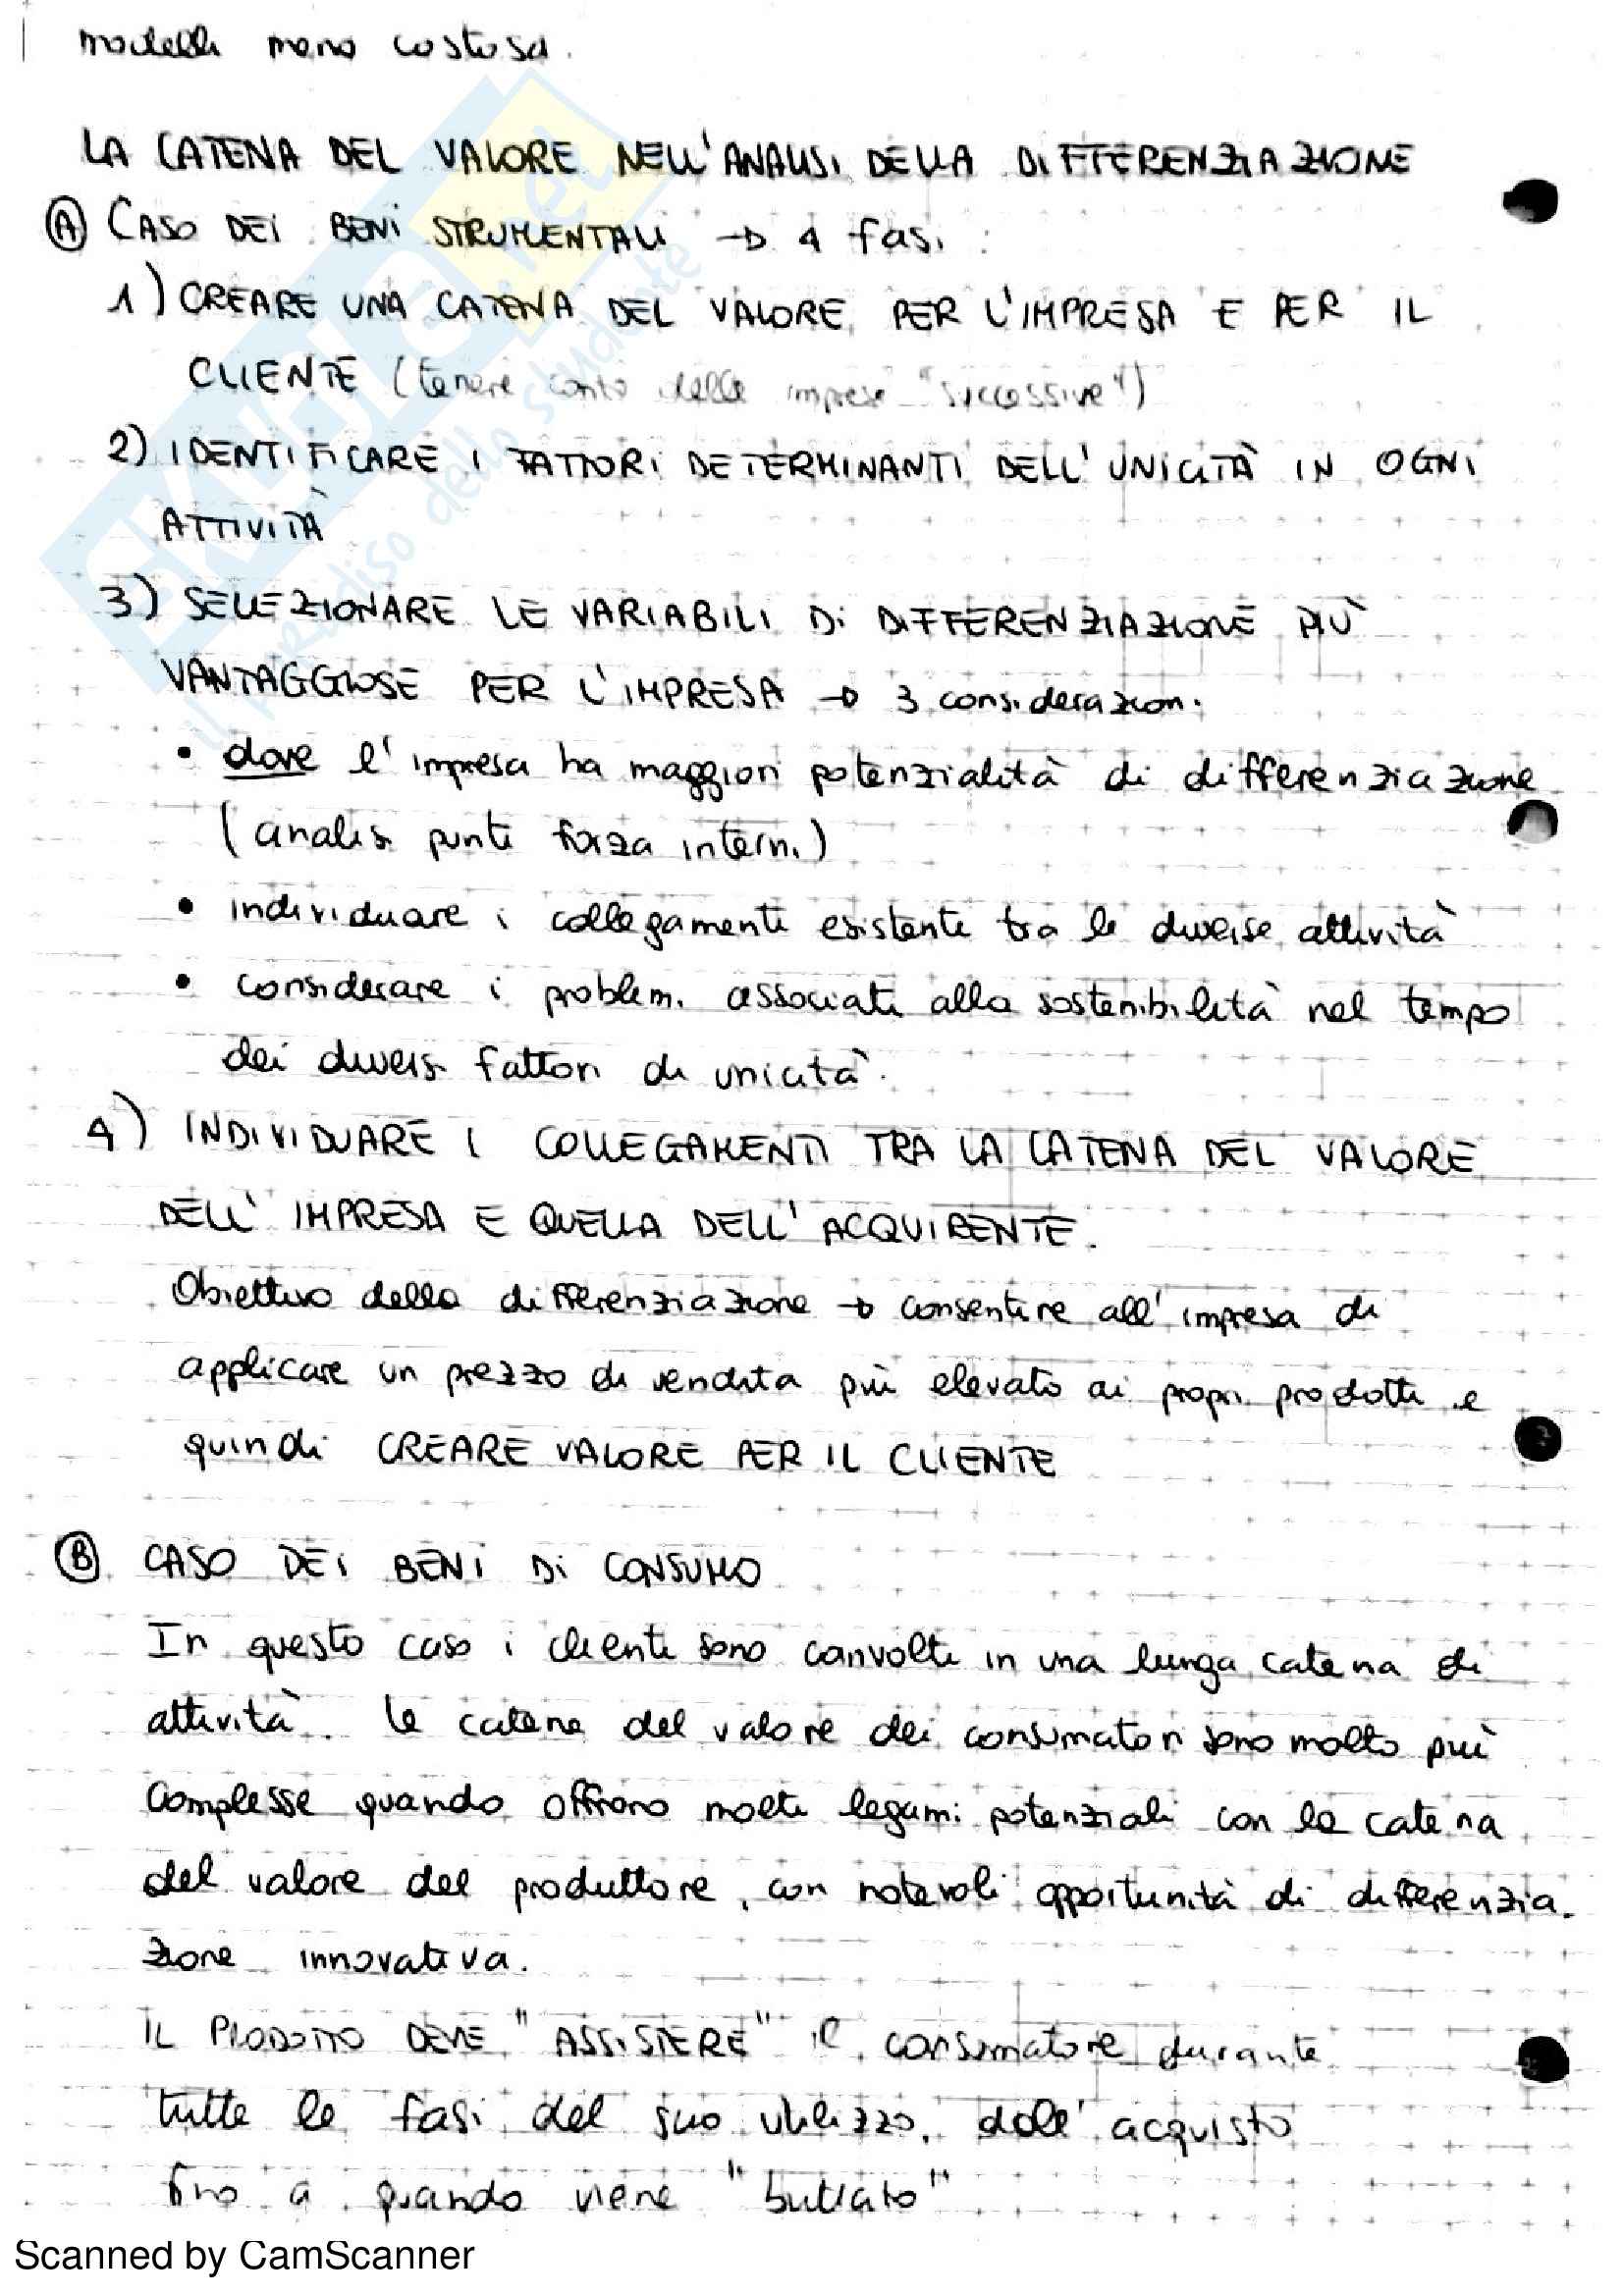 modelli meno costosa.
LA CATENA DEL VALORE NELL'ANALISI DELLA DIFFERENZIAZIONE
Ⓐ CASO DEI BENI STRUMENTALI → 4 fasi:
1) CREARE UNA CATENA DEL VALORE PER L'IMPRESA E PER IL
CLIENTE (tenere conto delle imprese "successive")
2) IDENTIFICARE I FATTORI DETERMINANTI DELL'UNICITÀ IN OGNI
ATTIVITÀ
3) SELEZIONARE LE VARIABILI DI DIFFERENZIAZIONE PIÙ
VANTAGGIOSE PER L'IMPRESA → 3 considerazioni
• dove l'impresa ha maggiori potenzialità di differenziazione
(analisi punti forza interni)
• individuare i collegamenti esistente tra le diverse attività
• considerare i problemi associati alla sostenibilità nel tempo
dei diversi fattori di unicità.
4) INDIVIDUARE I COLLEGAMENTI TRA LA CATENA DEL VALORE
DELL'IMPRESA E QUELLA DELL'ACQUIRENTE.
Obiettivo della differenziazione → consentire all'impresa di
applicare un prezzo di vendita più elevato ai propri prodotti e
quindi CREARE VALORE PER IL CLIENTE
Ⓑ CASO DEI BENI DI CONSUMO
In questo caso i clienti sono coinvolti in una lunga catena di
attività. Le catene del valore dei consumatori sono molto più
complesse quando offrono molti legami potenziali con la catena
del valore del produttore, con notevoli opportunità di differenzia-
zione innovativa.
IL PRODOTTO DEVE "ASSISTERE" il consumatore durante
tutte le fasi del suo utilizzo, dall'acquisto
fino a quando viene "buttato"
Scanned by CamScanner
SKUOLA.net
il paradiso dello studente